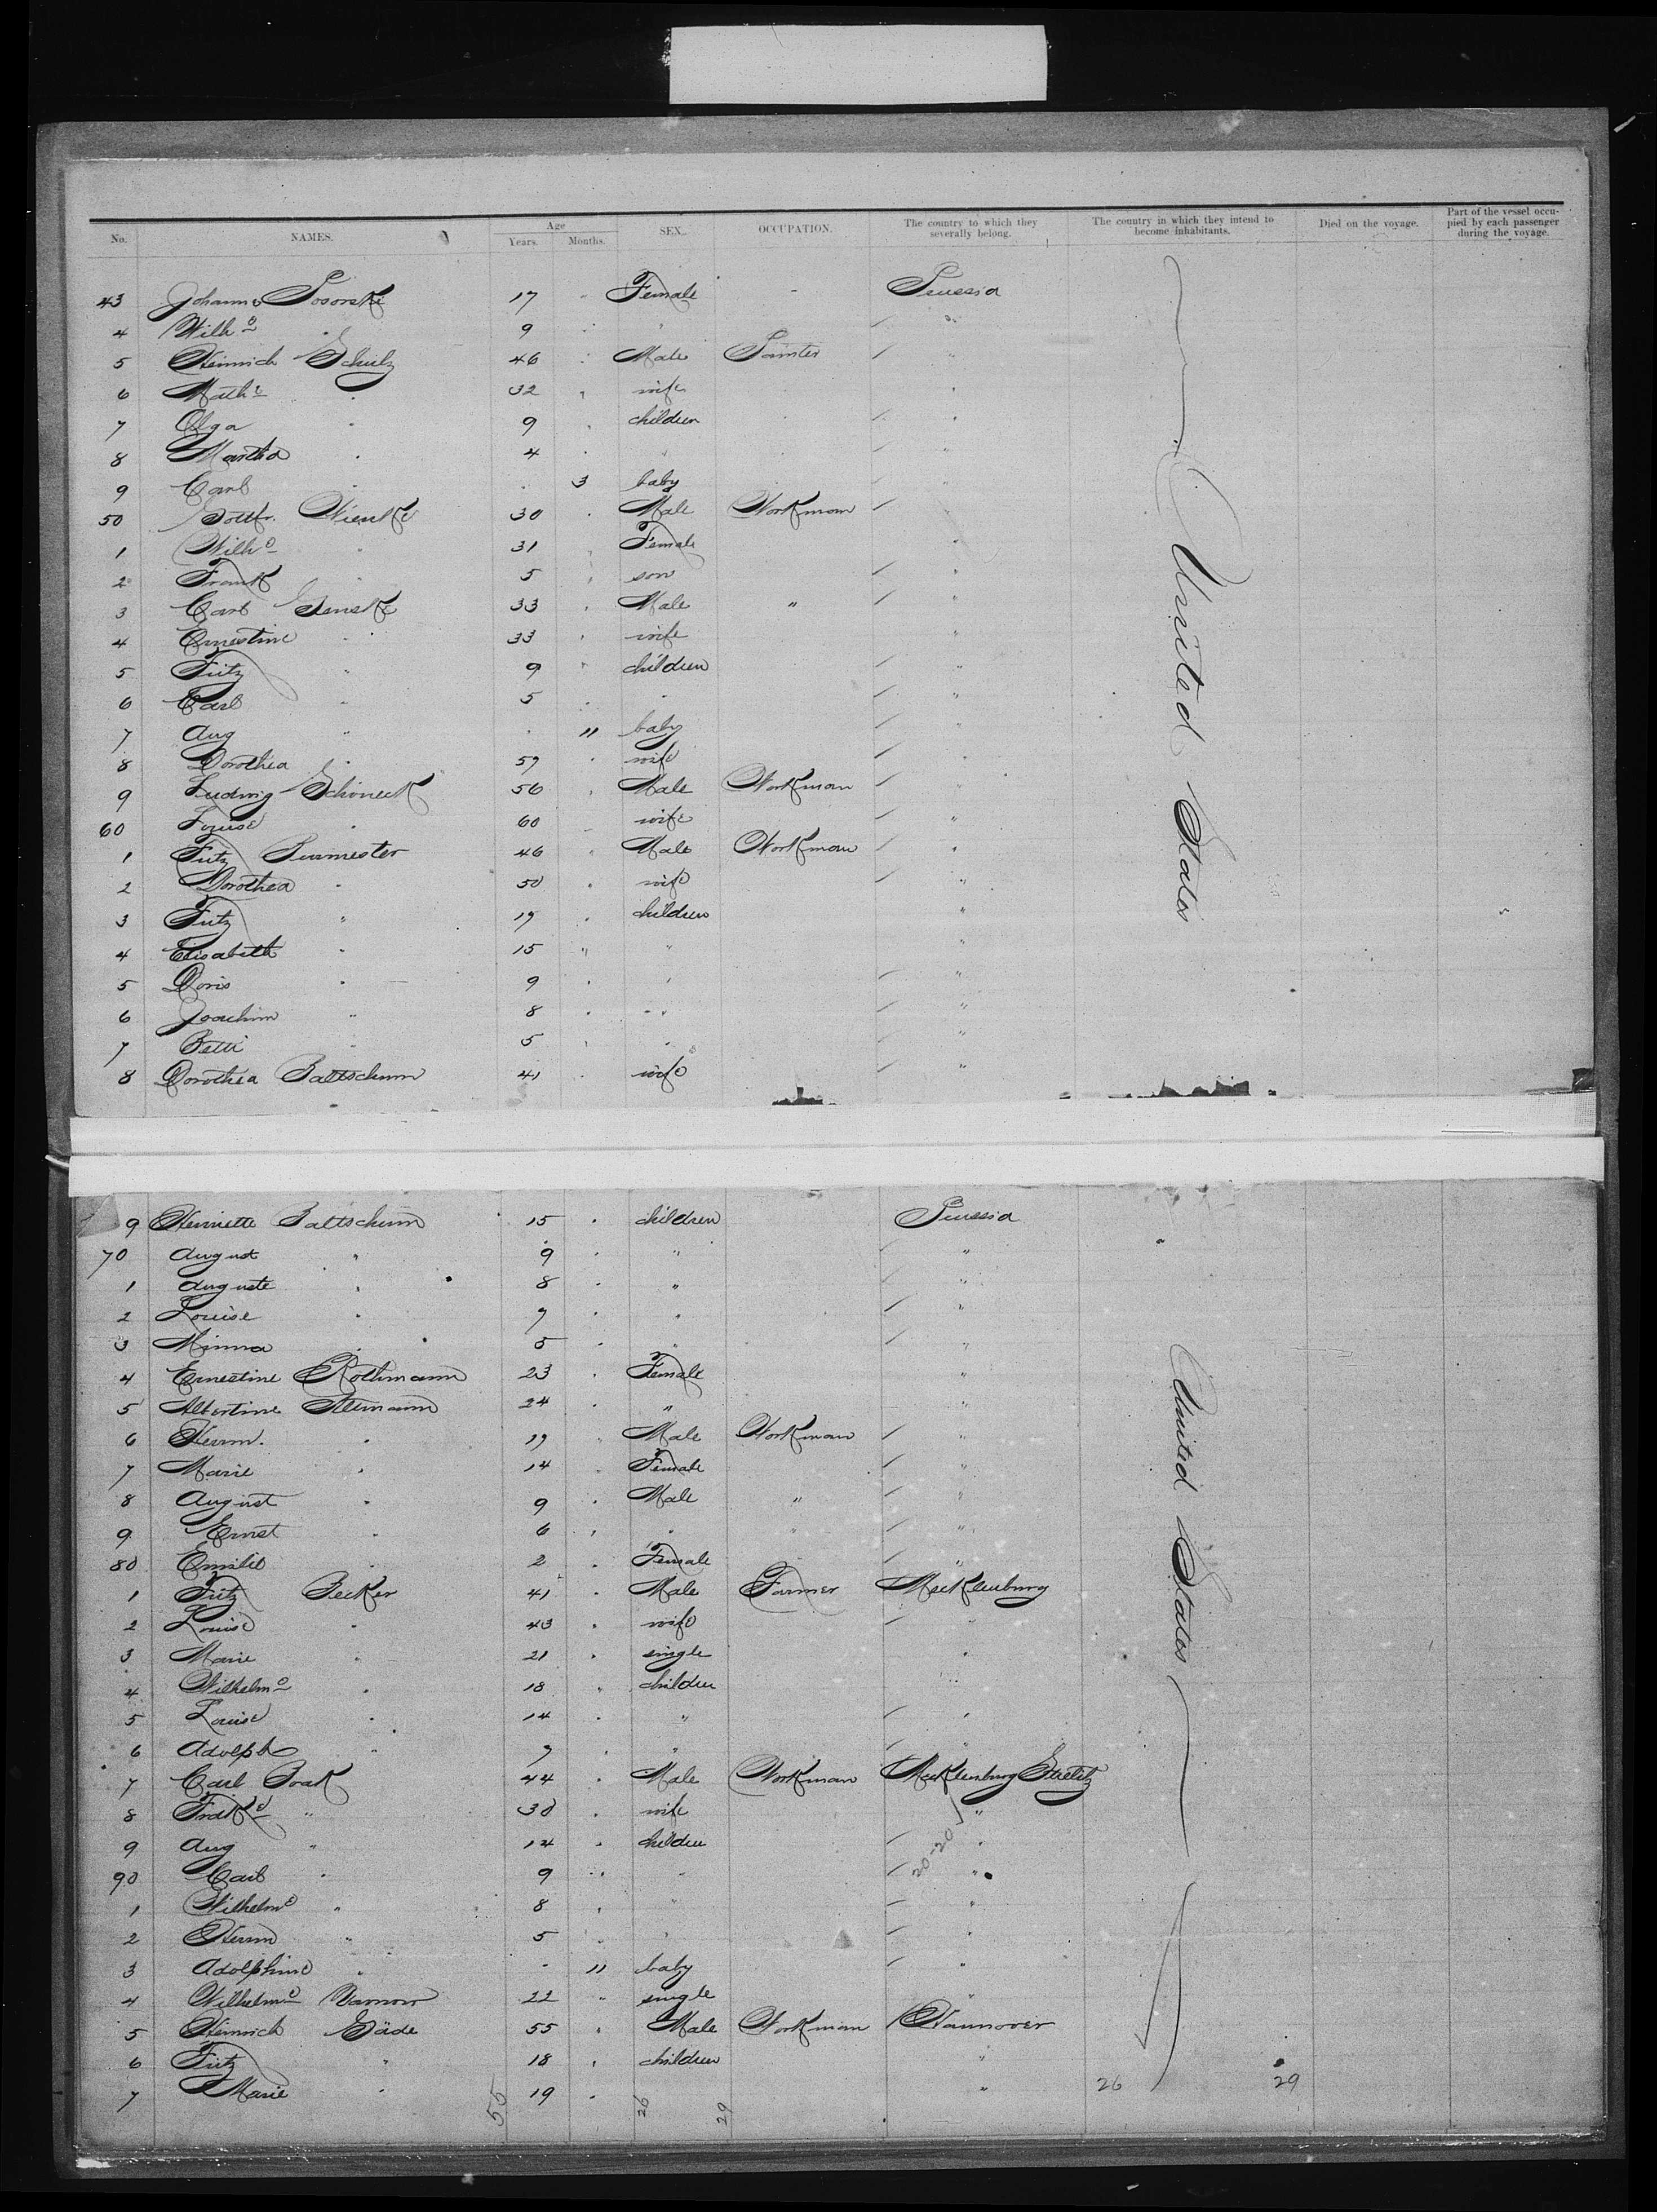 No. NAMES. Age Years. Months. SEX. OCCUPATION. The country to which they severally belong. The country in which they intend to become inhabitants. Died on the voyage. Part of the vessel occupied by each passenger during the voyage.
43 Johanne 17 " Female - Prussia
4 Wilhe " 9 " " "
5 Heinrich Schulz 46 " Male Painter "
6 Mathe " 32 " wife "
7 Olga " 9 " children "
8 Martha " 4 " " "
9 Carl " " 3 baby "
50 Gottfr. 30 " Male Workman "
1 Wilhe " 31 " Female "
2 Frank " 5 " son "
3 Carl 33 " Male " "
4 Ernestine " 33 " wife "
5 Fritz " 9 " children "
6 Carl " 5 " " "
7 Aug " " 11 baby "
8 Dorothea " 59 " wife "
9 Ludwig Schöneck 56 " Male Workman "
60 Louise " 60 " wife "
1 Fritz Burmester 46 " Male Workman "
2 Dorothea " 50 " wife "
3 Fritz " 19 " children "
4 Elisabeth " 15 " " "
5 Doris " 9 " " "
6 Joachim " 8 " " "
7 Betti " 5 " " "
8 Dorothea Baltschum 41 " wife "
United States
9 Henriette Baltschum 15 " children Prussia
70 August " 9 " " "
1 Auguste " 8 " " "
2 Louise " 7 " " "
3 Minna " 5 " " "
4 Ernestine Rothmann 23 " Female "
5 Albertine 24 " " "
6 Herm. " 19 " Male Workman "
7 Marie " 14 " Female "
8 August " 9 " Male " "
9 Ernst " 6 " " " "
80 Emilie " 2 " Female "
1 Fritz Becker 41 " Male Farmer Mecklenburg
2 Louise " 43 " wife "
3 Marie " 21 " single "
4 Wilhelme " 18 " children "
5 Louise " 14 " " "
6 Adolph " 7 " " "
7 Carl 44 " Male Workman Mecklenburg Strelitz
8 Fredke " 38 " wife "
9 Aug " 14 " children "
90 Carl " 9 " " "
1 Wilhelme " 8 " " "
2 Herm " 5 " " "
3 Adolphine " " 11 baby "
4 Wilhelme 22 " single "
5 Heinrich Gäde 55 " Male Workman Hannover
6 Fritz " 18 " children "
7 Marie " 19 " "
United States
20-20
55 26 29 26 29